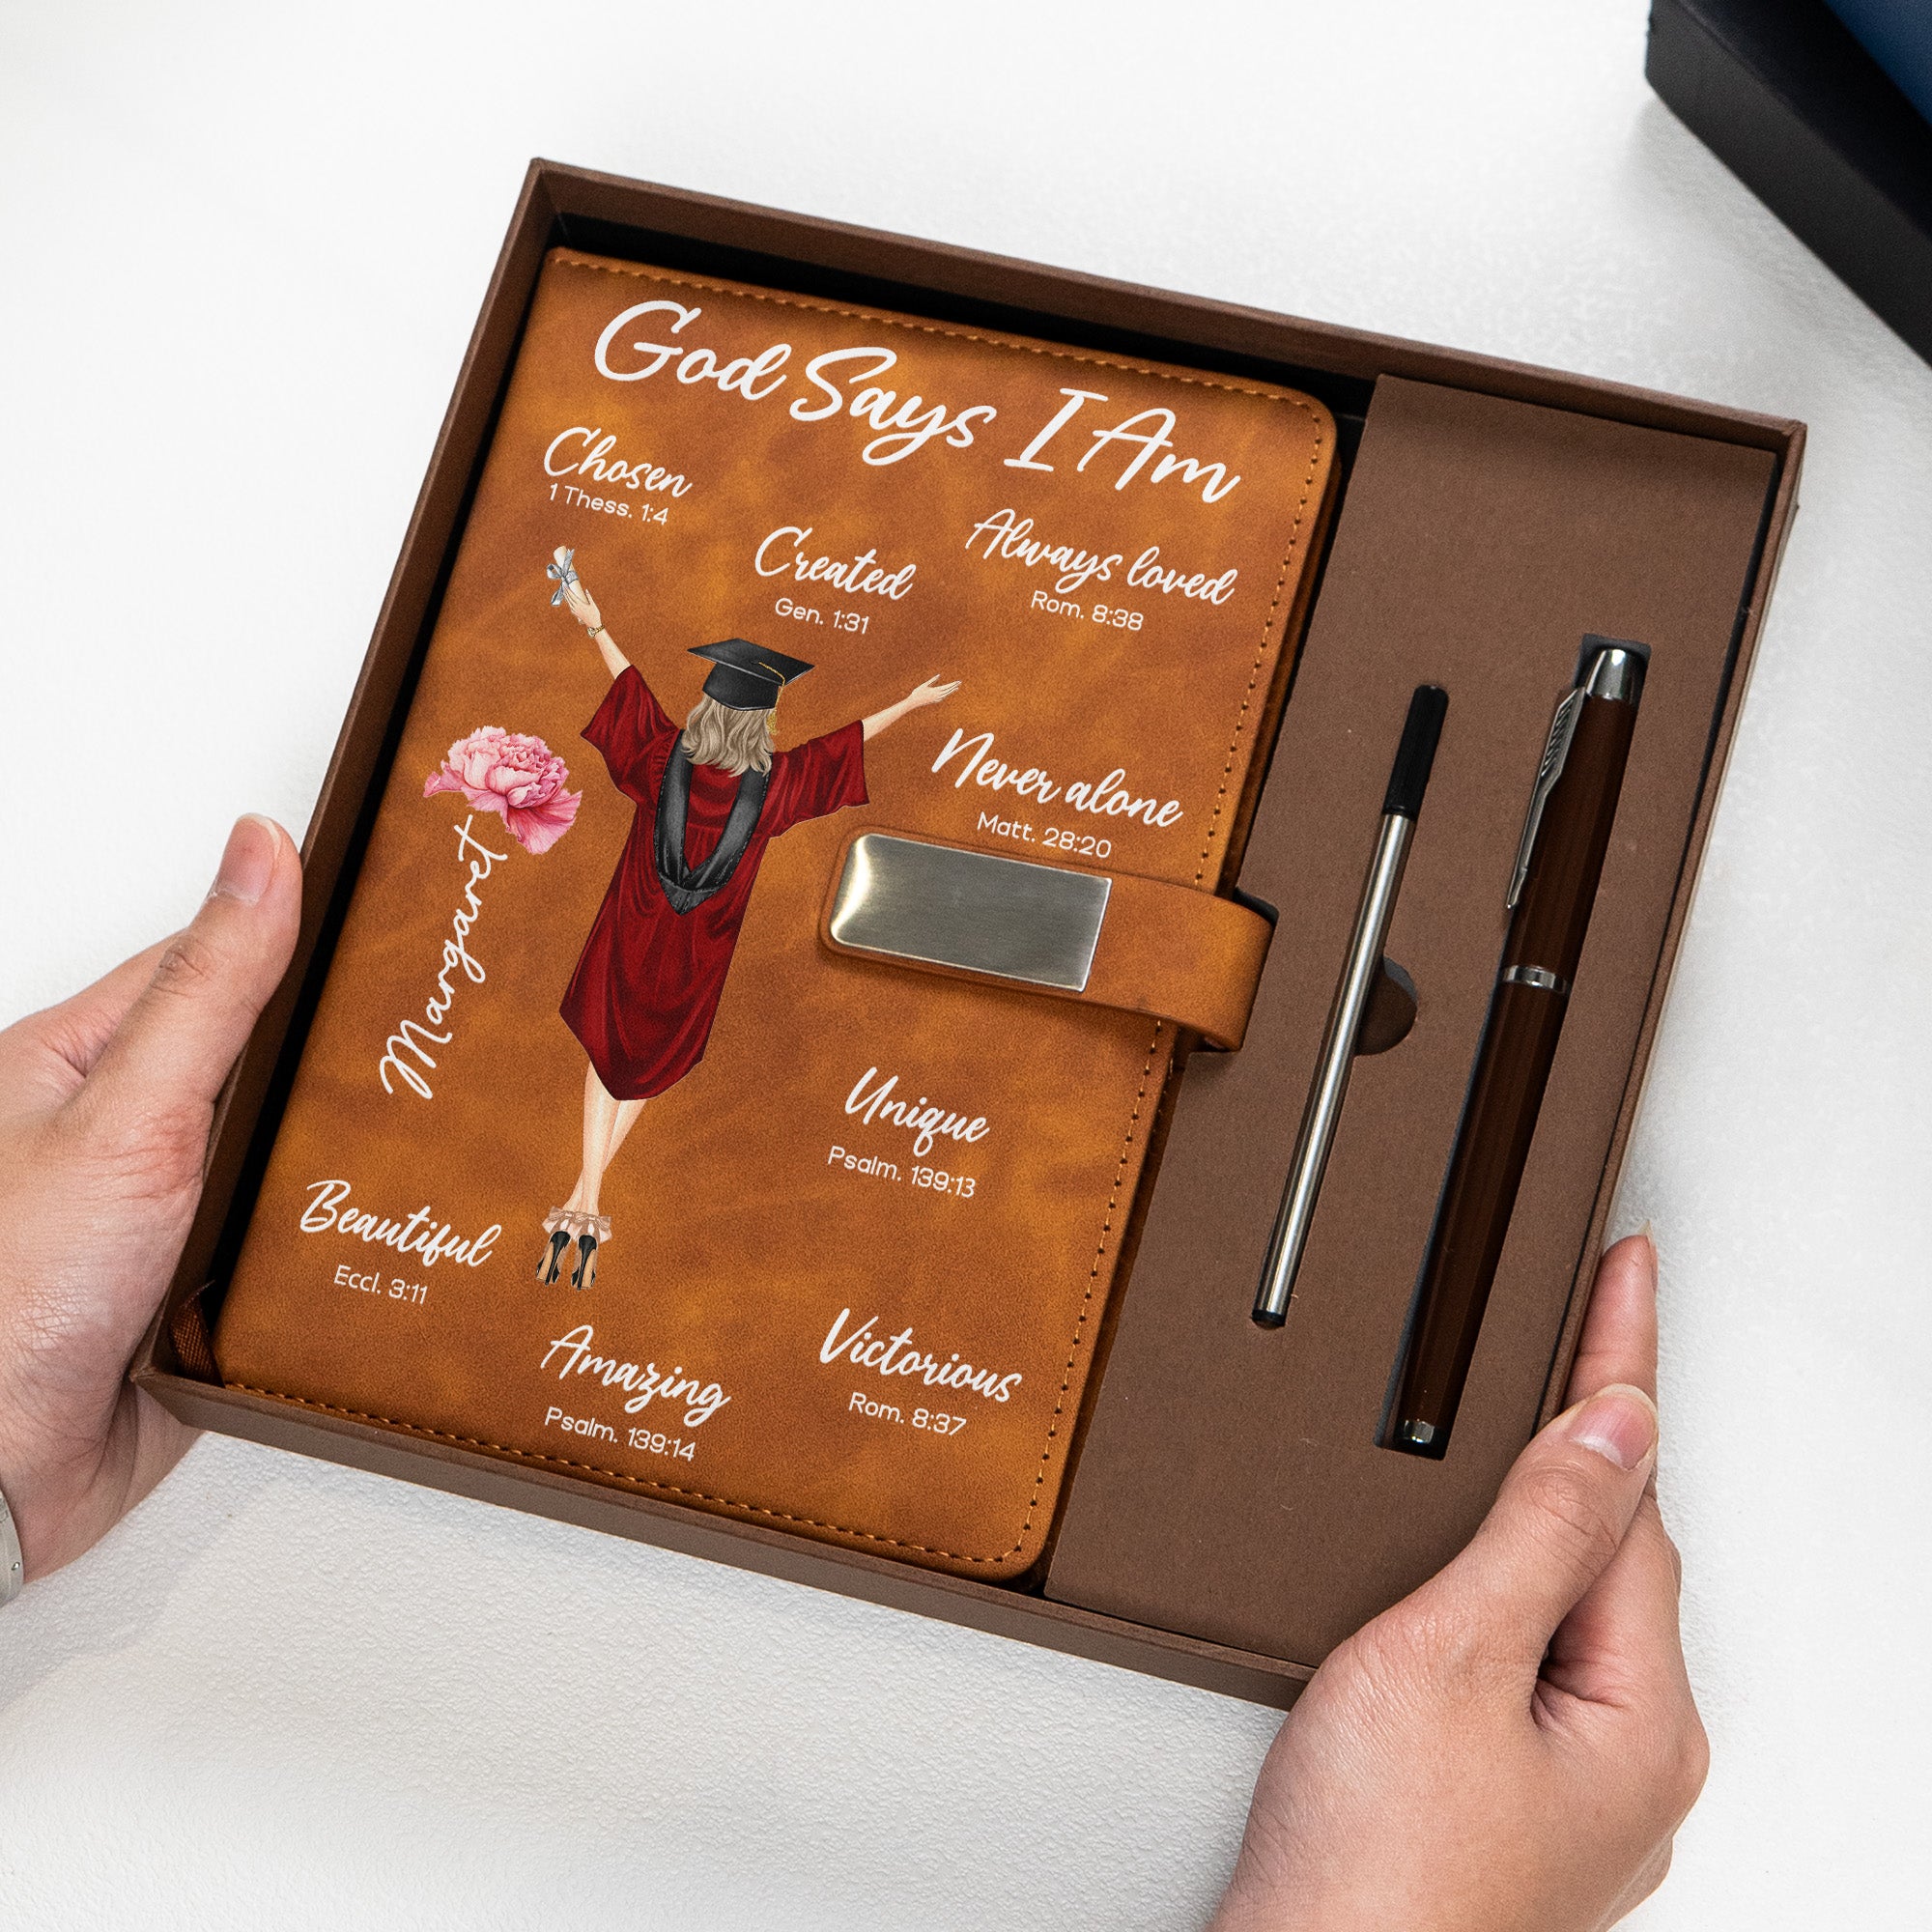 God Says I Am
Chosen
1 Thess. 1:4
Created
Gen. 1:31
Always loved
Rom. 8:38
Never alone
Matt. 28:20
Margaret
Unique
Psalm. 139:13
Beautiful
Eccl. 3:11
Amazing
Psalm. 139:14
Victorious
Rom. 8:37